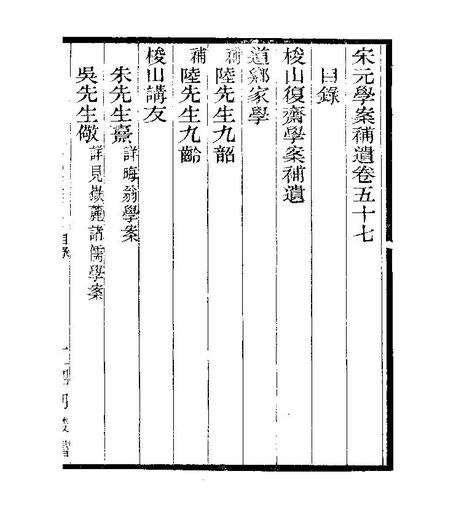 宋元學案補遺卷五十七
目錄
梭山復齋學案補遺
道鄉家學
補陸先生九韶
補陸先生九齡
梭山講友
朱先生熹詳晦翁學案
吳先生儆詳見嶽麓諸儒學案